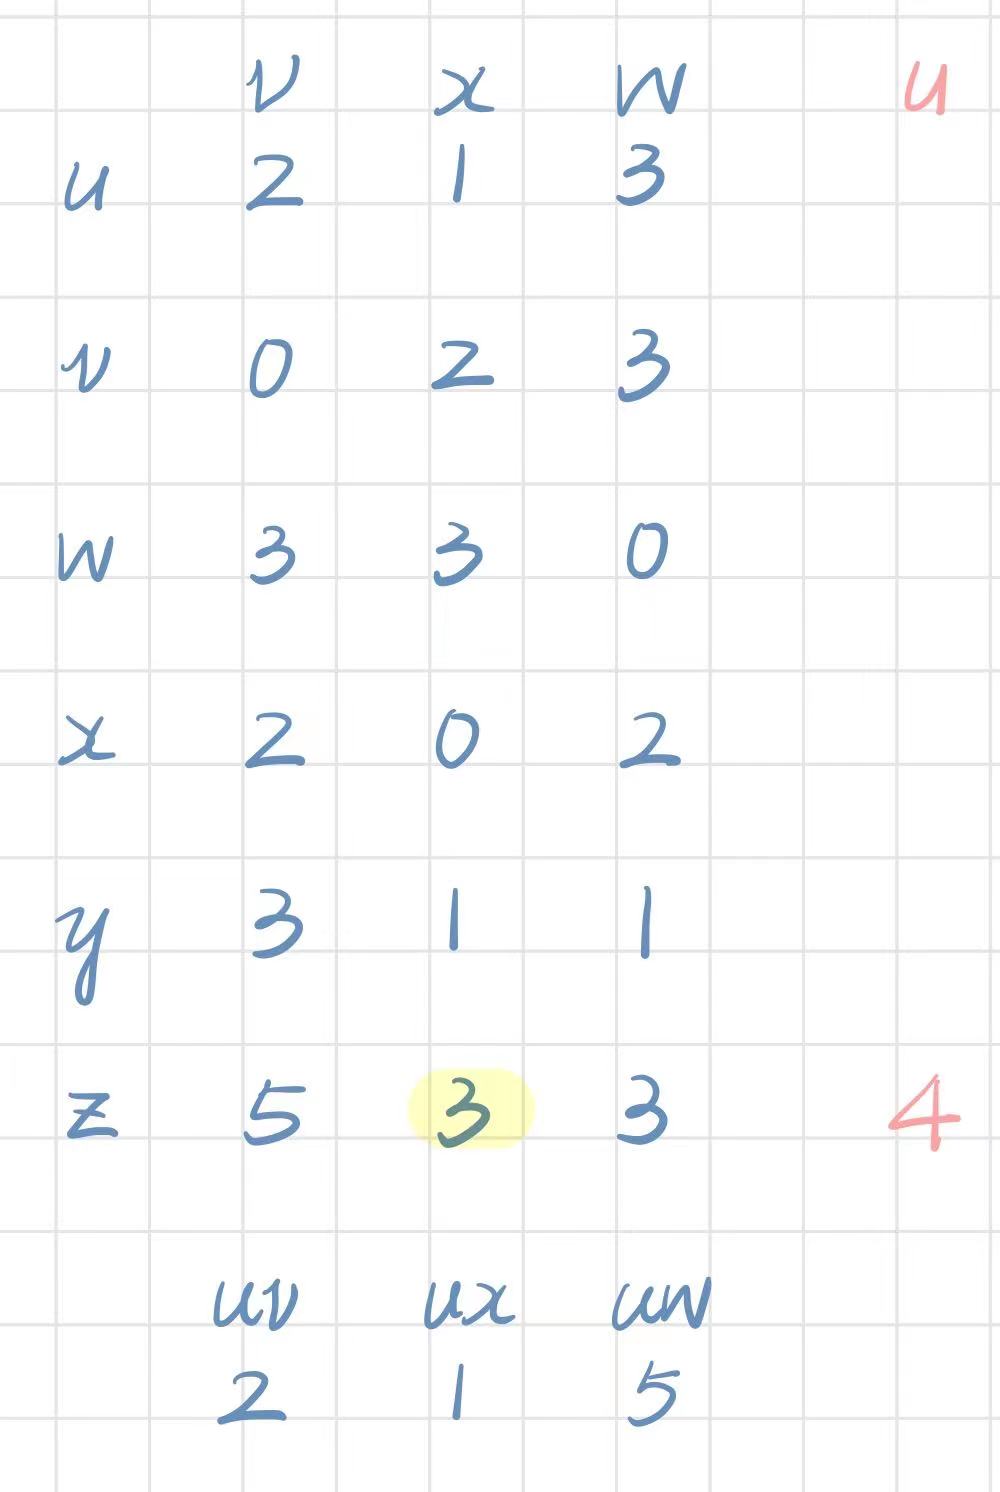 v x w u
u 2 1 3
v 0 2 3
w 3 3 0
x 2 0 2
y 3 1 1
z 5 3 3 4
uv ux uw
2 1 5